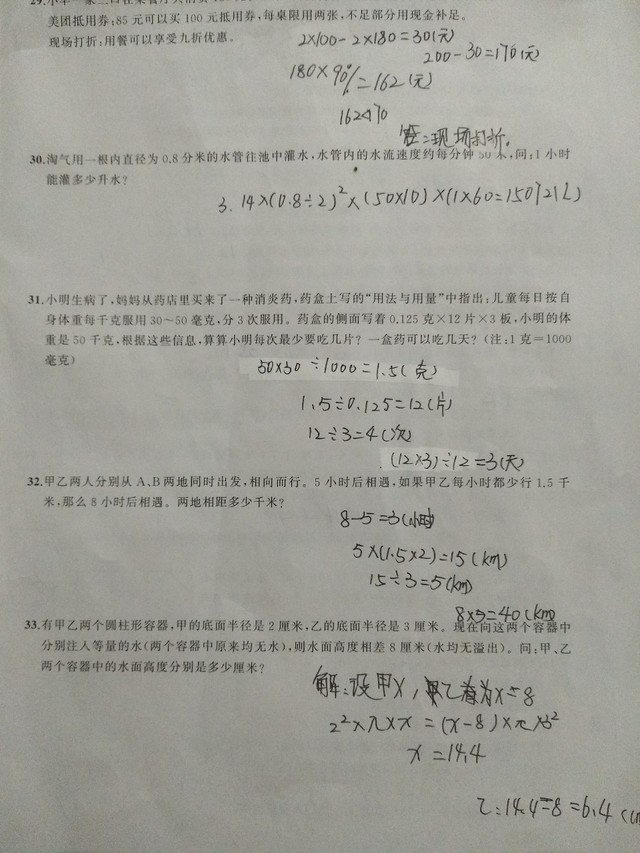 美团抵用券:85元可以买100元抵用券,每桌限用两张,不足部分用现金补足。
现场打折:用餐可以享受九折优惠。
2×100-2×180=30(元)
200-30=170(元)
180×90%=162(元)
162<170
答:现场打折。
30.淘气用一根内直径为0.8分米的水管往池中灌水,水管内的水流速度约每分钟50米,问:1小时
能灌多少升水?
3.14×(0.8÷2)²×(50×10)×(1×60=15072(L)
31.小明生病了,妈妈从药店里买来了一种消炎药,药盒上写的“用法与用量”中指出:儿童每日按自
身体重每千克服用30~50毫克,分3次服用。药盒的侧面写着0.125克×12片×3板,小明的体
重是50千克,根据这些信息,算算小明每次最少要吃几片?一盒药可以吃几天?(注:1克=1000
毫克)
50×30÷1000=1.5(克)
1.5÷0.125=12(片)
12÷3=4(次)
(12×3)÷12=3(天)
32.甲乙两人分别从A、B两地同时出发,相向而行。5小时后相遇,如果甲乙每小时都少行1.5千
米,那么8小时后相遇。两地相距多少千米?
8-5=3(小时)
5×(1.5×2)=15(km)
15÷3=5(km)
8×5=40(km)
33.有甲乙两个圆柱形容器,甲的底面半径是2厘米,乙的底面半径是3厘米。现在向这两个容器中
分别注入等量的水(两个容器中原来均无水),则水面高度相差8厘米(水均无溢出)。问:甲、乙
两个容器中的水面高度分别是多少厘米?
解:设甲x,乙为x-8
2²×π×x=(x-8)×π×3²
x=14.4
乙:14.4-8=6.4(cm